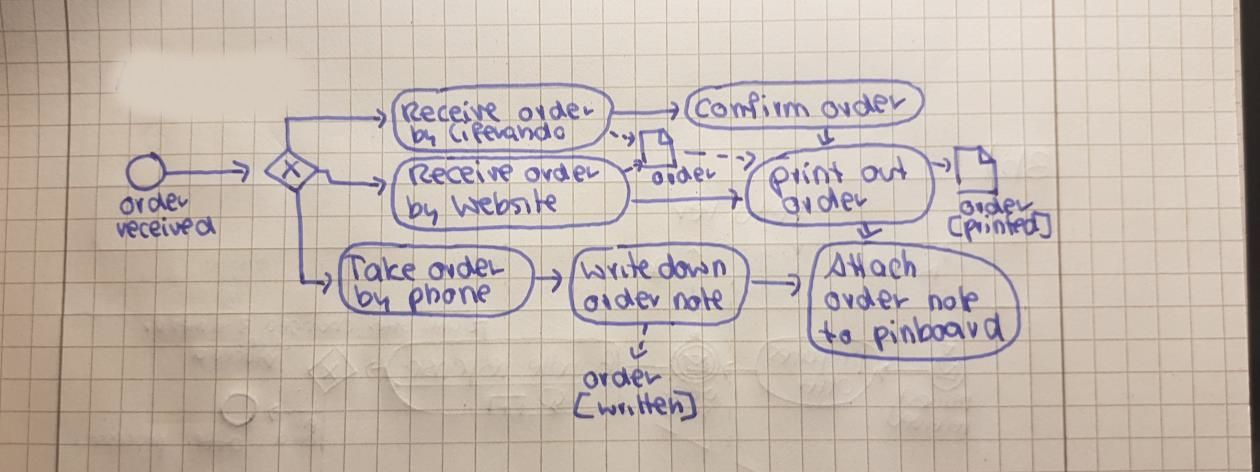 Receive order
by Liferando
Confirm order
X
order
received
Receive order
by Website
order
print out
order
order
[printed]
Take order
by phone
Write down
order note
Attach
order note
to pinboard
order
[written]